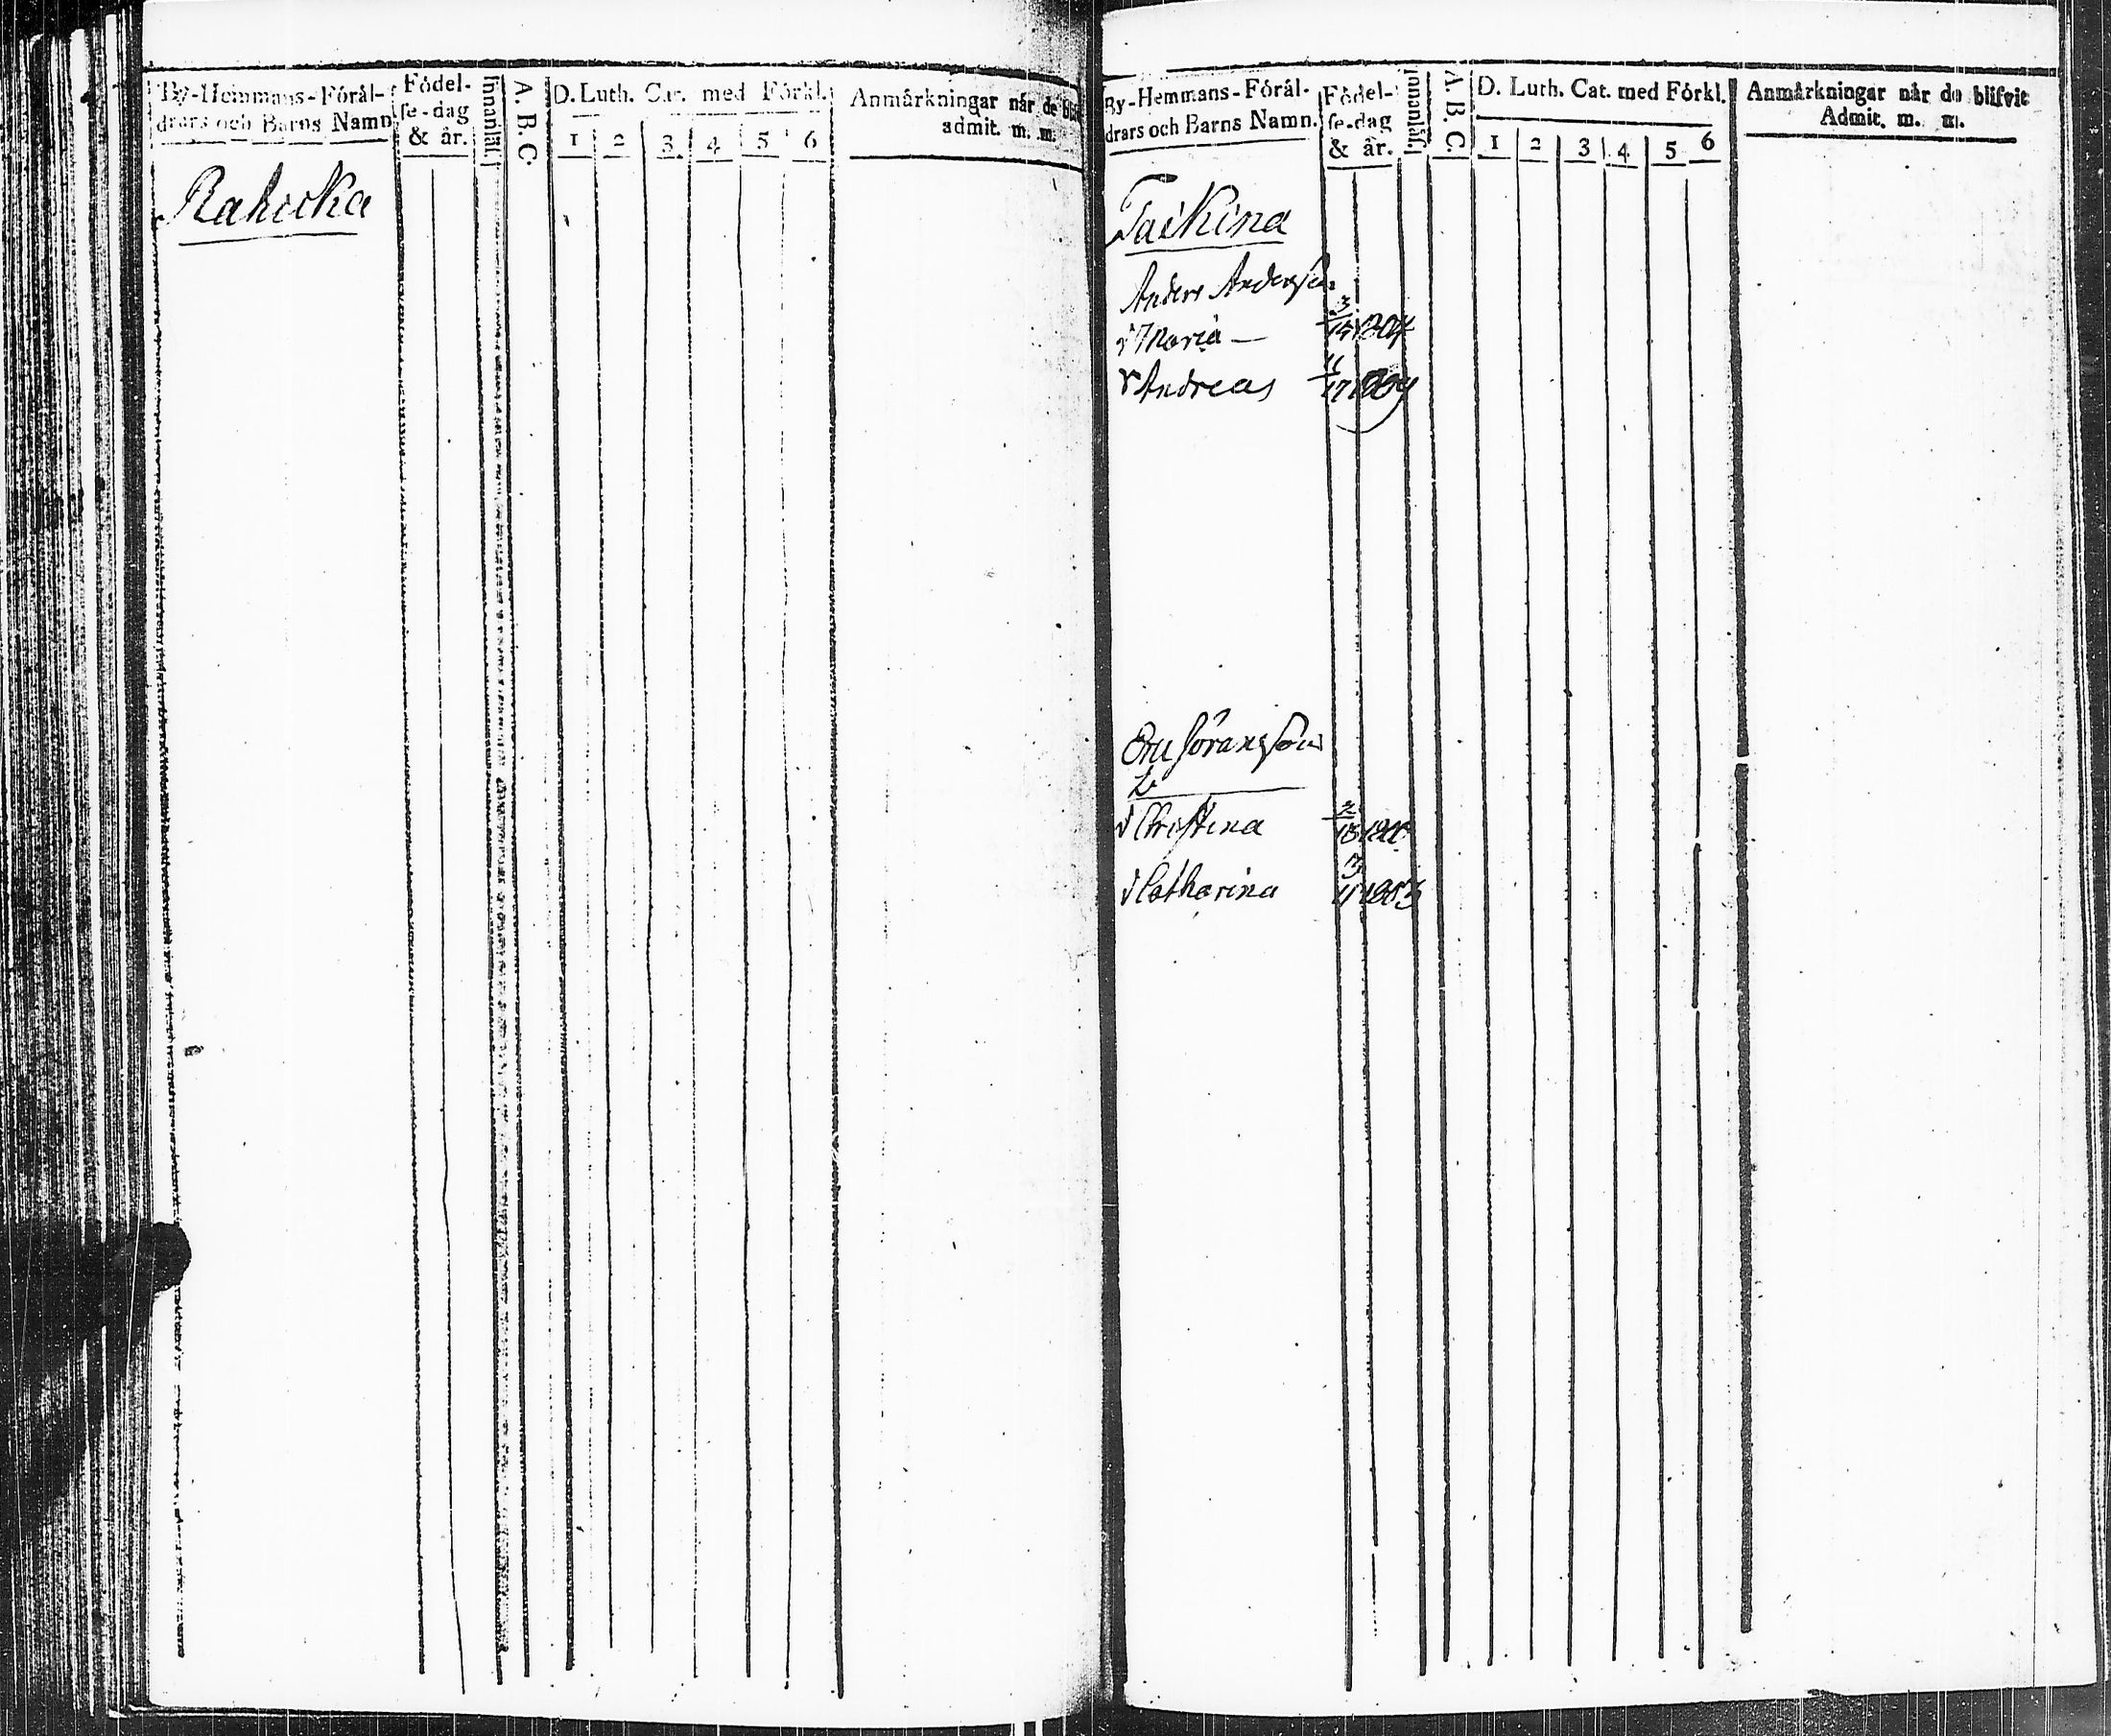 By-Hemmans-Förål-
drars och Barns Namn
Födel-
se-dag
& år.
Innanläs.
A. B. C.
D. Luth. Cat. med Förkl.
1 2 3 4 5 6
Anmårkningar når de blif
admit. m. m.
Rahicka
By-Hemmans-Förål-
drars och Barns Namn.
Födel-
se-dag
& år.
Innanläs.
A. B. C.
D. Luth. Cat. med Förkl.
1 2 3 4 5 6
Anmårkningar når de blifvit
Admit. m. m.
Taikina
Anders Andersson
Maria —
Andreas
Söransson
Christina
Catharina 1803